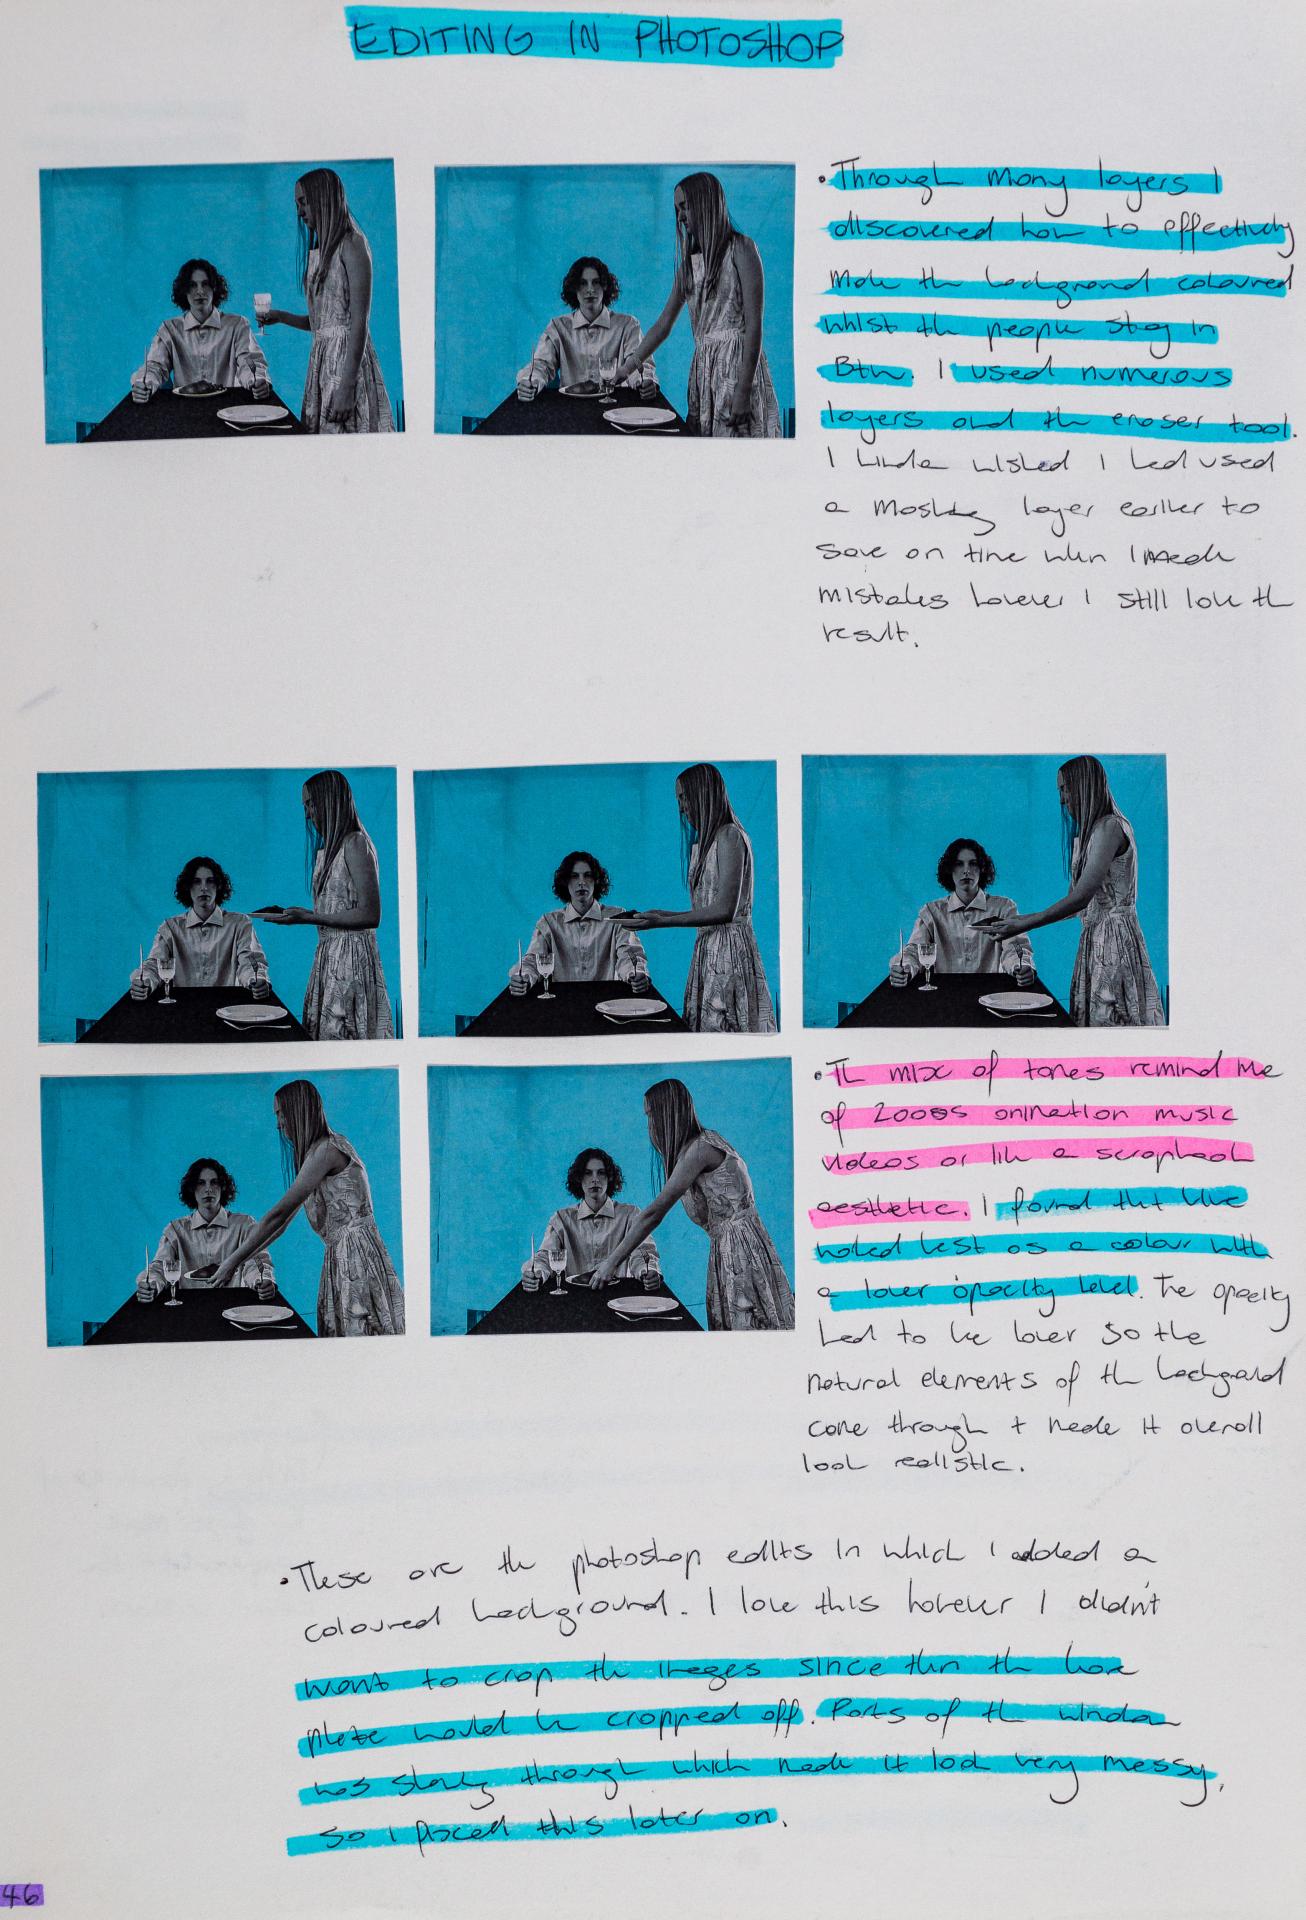 EDITING IN PHOTOSHOP
• Through many layers I
discovered how to effectively
make the background coloured
whilst the people stay in
B+w. I used numerous
layers and the eraser tool.
I kinda wished I had used
a masking layer earlier to
save on time when I made
mistakes however I still love the
result.
• The mix of tones remind me
of 2000s animation music
videos or like a scrapbook
aesthetic. I found that blue
worked best as a colour with
a lower opacity level. The opacity
had to be lower so the
natural elements of the background
come through + made it overall
look realistic.
• These are the photoshop edits in which I added a
coloured background. I love this however I didn't
want to crop the images since then the
plate would be cropped off. Parts of the window
was showing through which made it look very messy,
so I this later on.
46